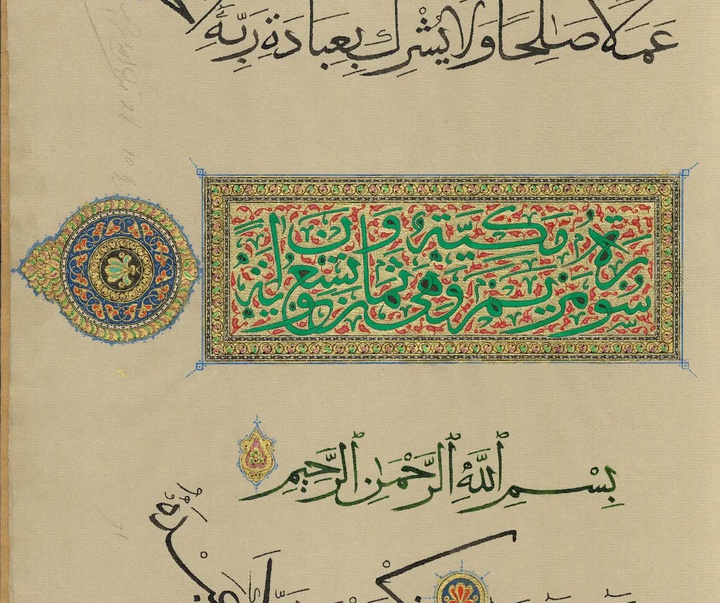 عَمَلًا صَالِحًا وَلَا يُشْرِكْ بِعِبَادَةِ رَبِّهِ
سورة مريم مكية وهي ثمان وتسعون آية
بِسْمِ اللَّهِ الرَّحْمَٰنِ الرَّحِيمِ